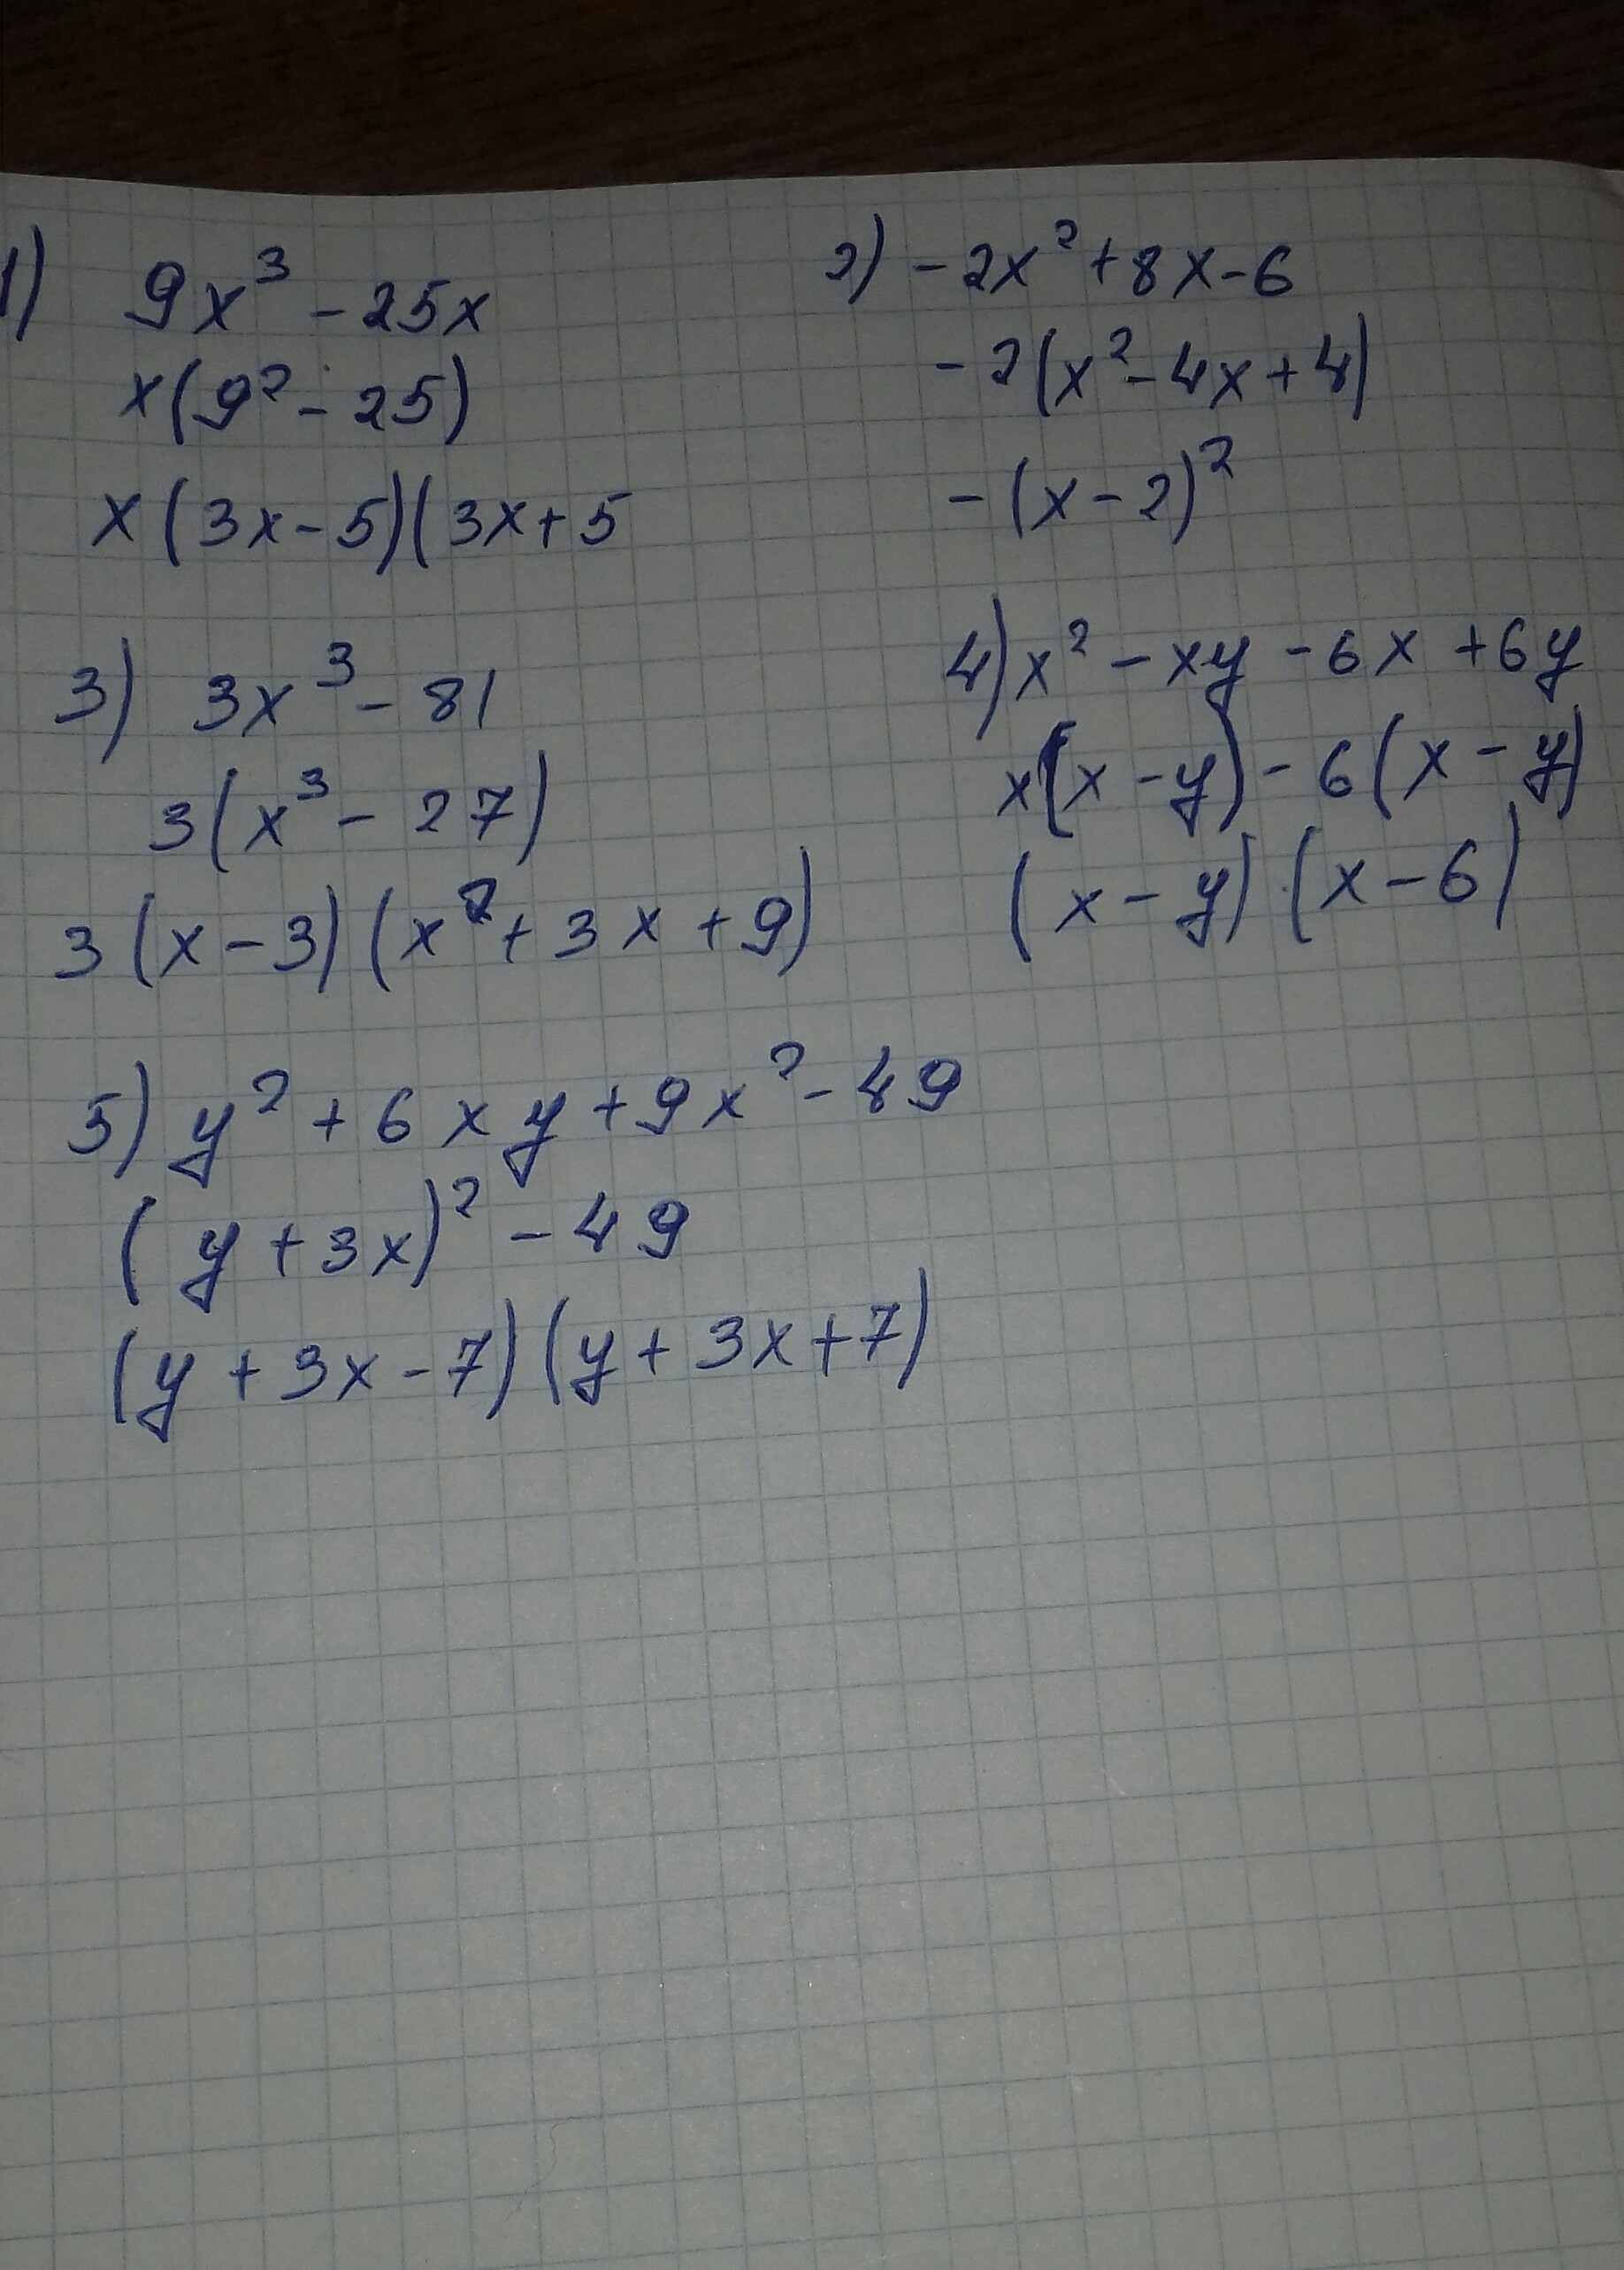 1) 9x³ - 25x
x(9² - 25)
x(3x-5)(3x+5
2) -2x²+8x-6
-2(x²-4x+4)
-(x-2)²
3) 3x³-81
3(x³-27)
3(x-3)(x²+3x+9)
4) x²-xy-6x+6y
x(x-y)-6(x-y)
(x-y)(x-6)
5) y²+6xy+9x²-49
(y+3x)²-49
(y+3x-7)(y+3x+7)